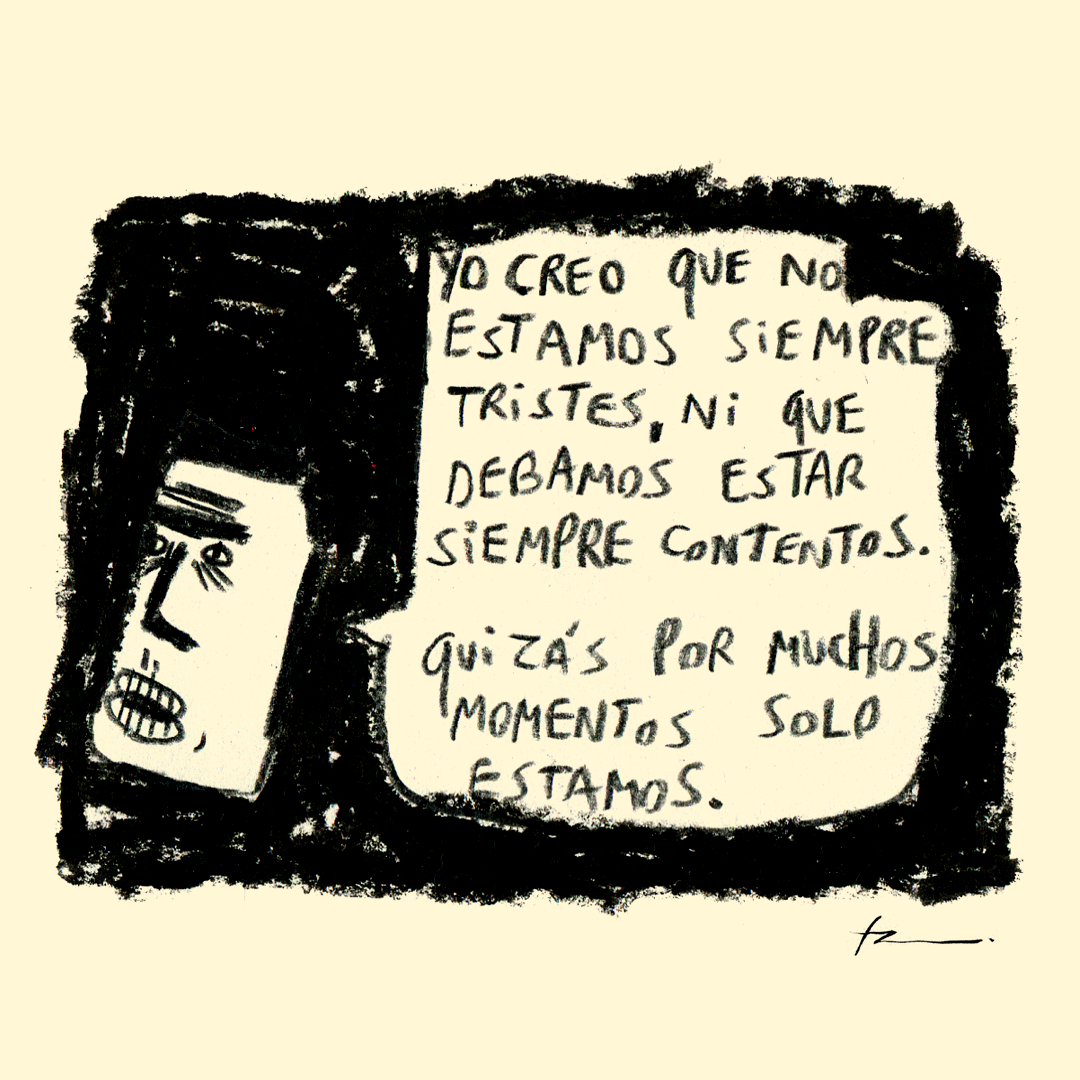 YO CREO QUE NO
ESTAMOS SiEMPRE
TRiSTES, Ni QUE
DEBAMOS ESTAR
SiEMPRE CONTENTOS.
QUiZÁS POR MUCHOS
MOMENTOS SOLO
ESTAMOS.